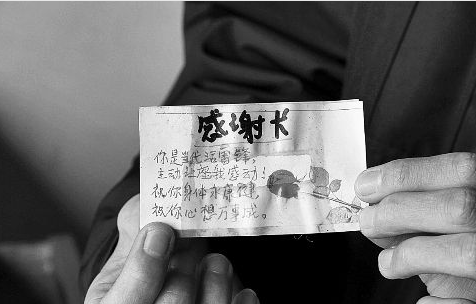 感谢卡
你是当代活雷锋,
主动让座我感动!
祝你身体永康健,
祝你心想万事成。